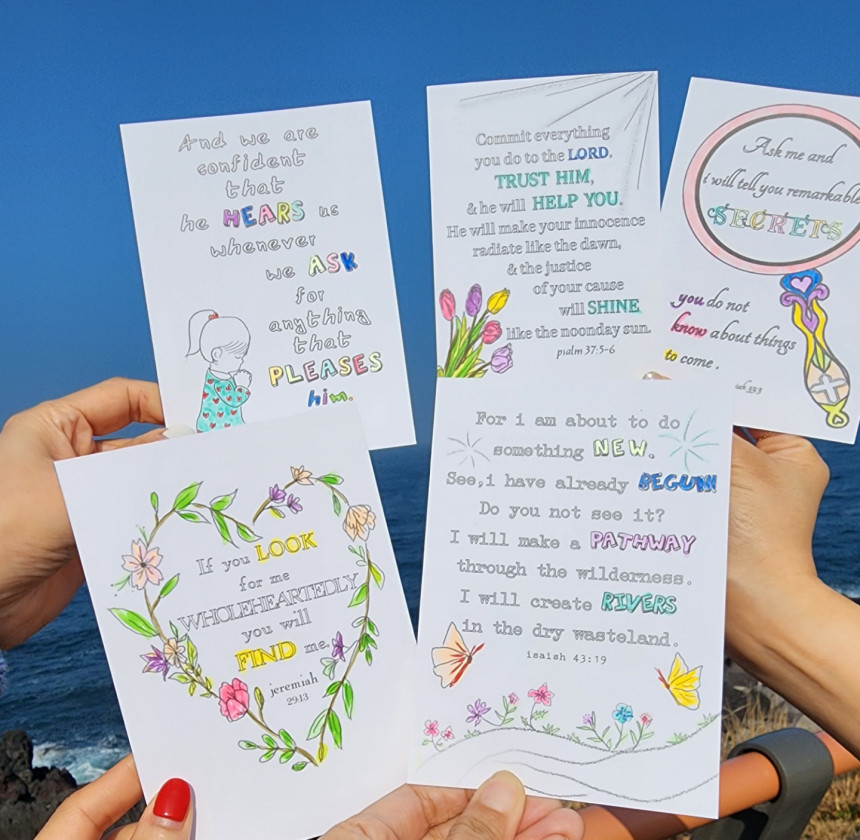 And we are
confident
that
he HEARS us
whenever
we ASK
for
anything
that
PLEASES
him.
Commit everything
you do to the LORD.
TRUST HIM,
& he will HELP YOU.
He will make your innocence
radiate like the dawn,
& the justice
of your cause
will SHINE
like the noonday sun.
psalm 37:5-6
Ask me and
i will tell you remarkable
SECRETS
you do not
know about things
to come.
If you LOOK
for me
WHOLEHEARTEDLY
you will
FIND me.
jeremiah
29:13
For i am about to do
something NEW.
See, i have already BEGUN!
Do you not see it?
I will make a PATHWAY
through the wilderness.
I will create RIVERS
in the dry wasteland.
isaiah 43:19